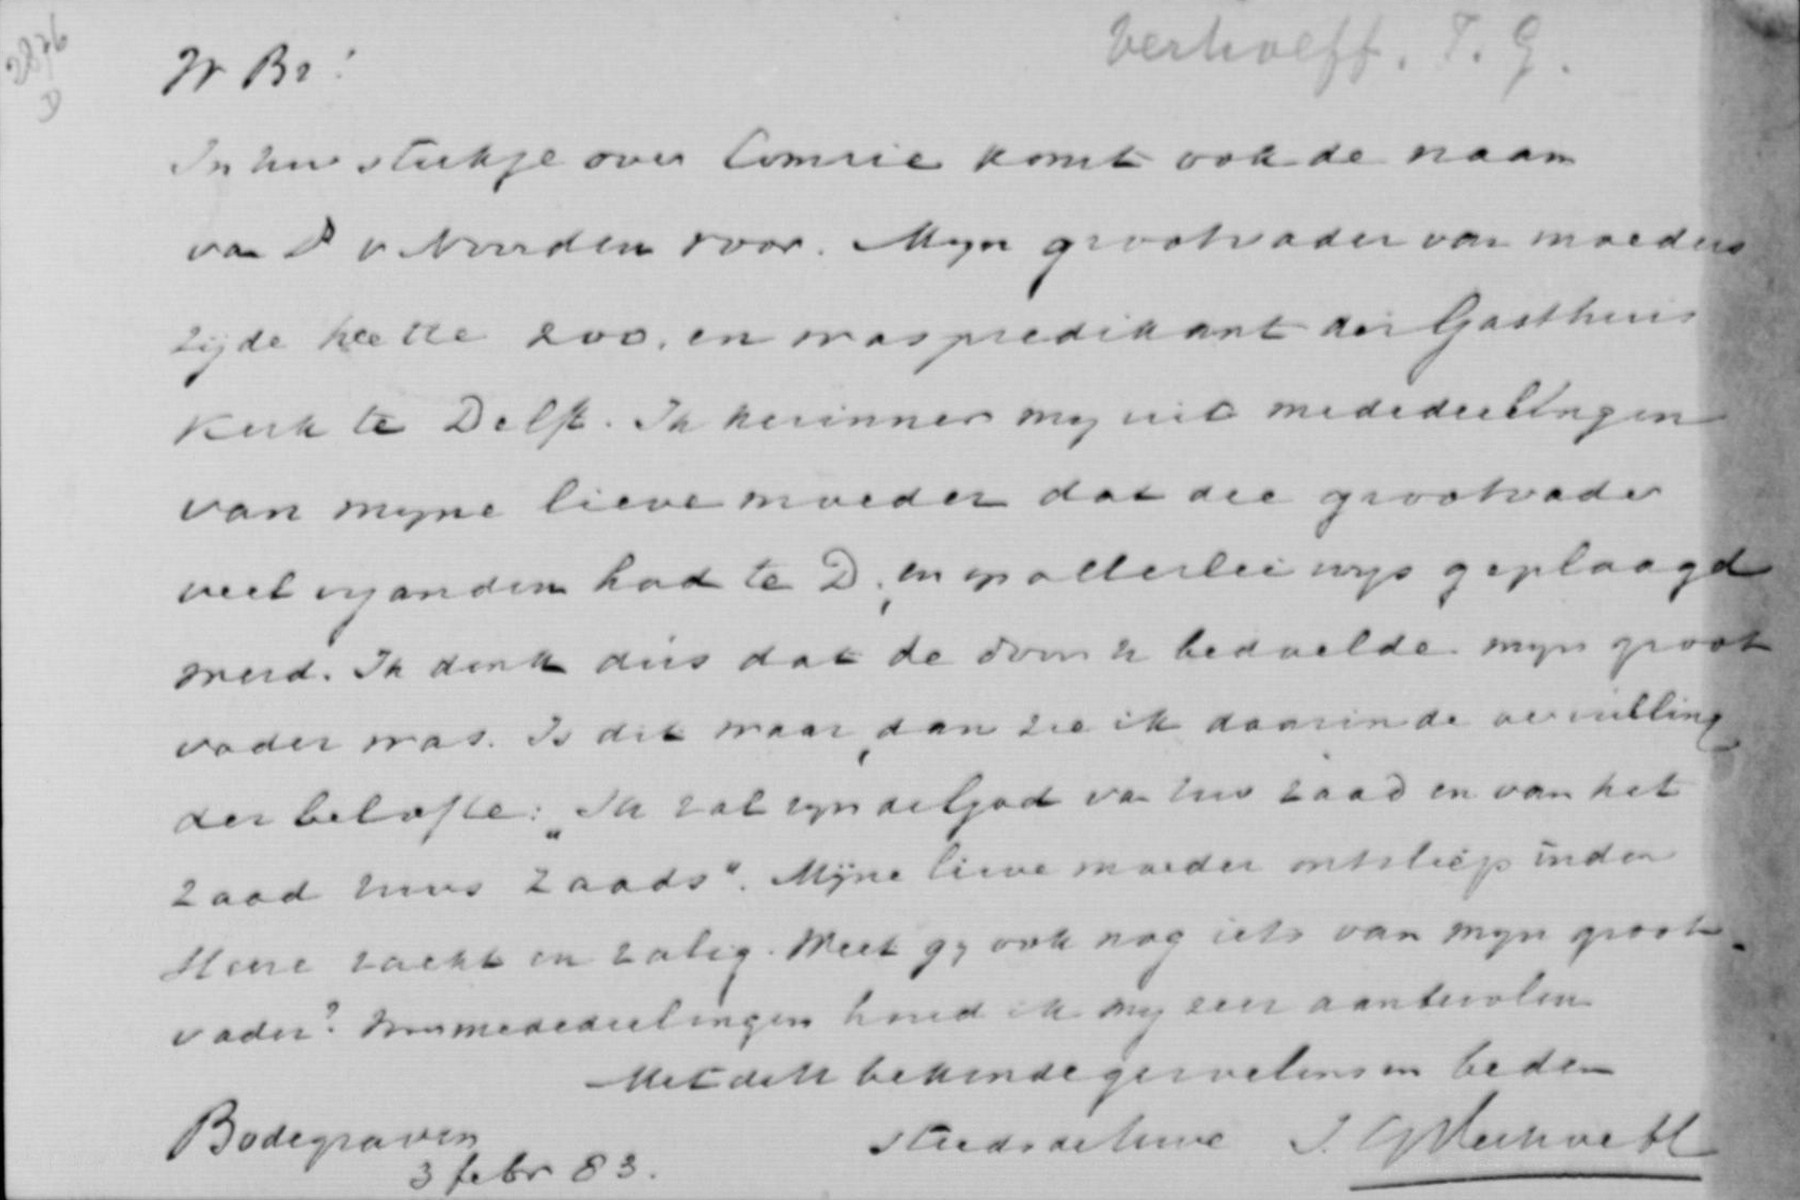 2876
D
Verhoeff. J. G.
W Br!
In uw stukje over Comrie komt ook de naam
van Ds v Noorden voor. Mijn grootvader van moeders
zijde heette zoo. en was predikant der Gasthuis
Kerk te Delft. Ik herinner mij uit mededeelingen
van mijne lieve moeder dat die grootvader
veel vijanden had te D., en op allerlei wijs geplaagd
werd. Ik denk dus dat de door u bedoelde mijn groot
vader was. Is dit waar, dan zie ik daarin de vervulling
der belofte: „Ik zal zijn de God van uw zaad en van het
zaad uws zaads". Mijne lieve moeder ontsliep in den
Heere zacht en zalig. Weet gij ook nog iets van mijn groot-
vader? Voor mededeelingen houd ik mij zeer aanbevolen
Met de u bekende gevoelens en beden
Bodegraven steeds de uwe J. G Verhoeff
3 febr 83.